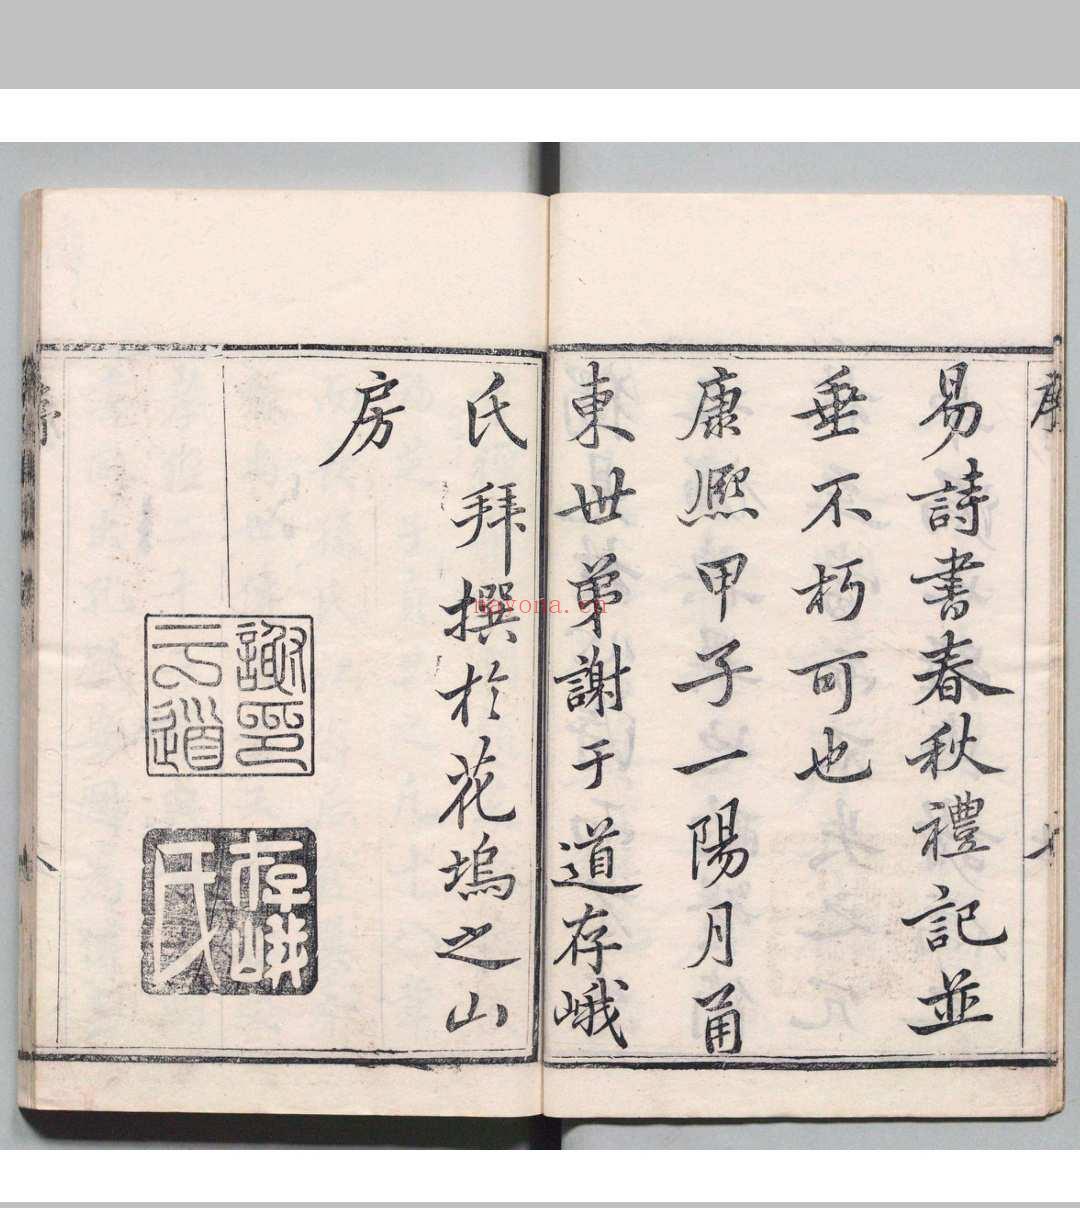 序
易詩書春秋禮記並
垂不朽可也
康熈甲子一陽月甬
東世弟謝于道存峨
氏拜撰於花塢之山
房
謝印
于道
存峨
氏
nayona.cn